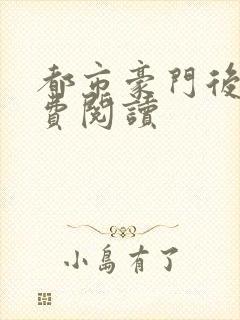 都市豪門後
費閱讀
小島有了